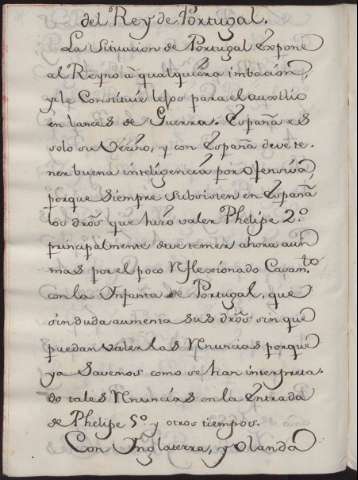 del Rey de Portugal.
La Situacion de Portugal expone
al Reyno a qualquiera imbacion,
y le Constituie lejos para el auxilio
en lances de Guerra. España es
solo su Vecino, y con España deve te-
ner buena inteligencia por ofensiva,
porque siempre subsisten en España
los dros que hizo valer Phelipe 2º
principalmente deve temer ahora aun
mas por el poco reflecsionado Casam.to
con la Infanta de Portugal, que
sin duda aumenta sus dros sin que
puedan valer las renuncias porque
ya savemos como se han interpreta-
do tales renuncias en la entrada
de Phelipe 5º y otros tiempos.
Con Ynglaterra, y Olanda